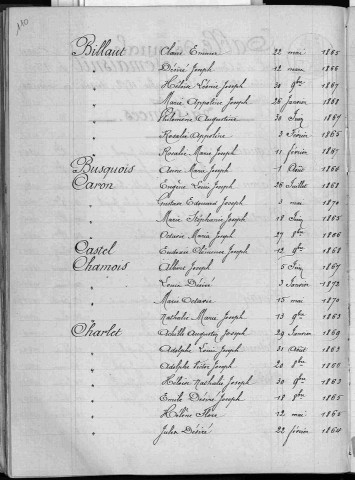 110
Billaut Claire Emma 22 mai 1865
" Désiré Joseph 12 mars 1866
" Héloïse Léonie Joseph 20 9bre 1867
" Marie Appoline Joseph 26 Janvier 1868
" Philomène Augustine 30 Juin 1867
" Rosalie Appoline 3 Février 1865
" Rosalie Marie Joseph 11 février 1867
Busquois Anne Marie Joseph 1 Août 1866
Caron Eugène Louis Joseph 26 Juillet 1868
" Gustave Edouard Joseph 3 mai 1870
" Marie Stéphanie Joseph 18 Juin 1865
" Octavie Maria Joseph 27 8bre 1866
Castel Eustasie Clémence Joseph 13 9bre 1868
Chamois Albert Joseph 5 Juin 1867
" Louis Désiré 3 Janvier 1873
" Marie Octavie 15 mai 1870
" Nathalie Marie Joseph 13 9bre 1863
Charlet Achille Augustin Joseph 29 Janvier 1869
" Adolphe Louis Joseph 31 Août 1863
" Adolphe Victor Joseph 20 8bre 1866
" Héloïse Nathalie Joseph 30 9bre 1863
" Emile Désiré Joseph 18 8bre 1865
" Hélène Flore 12 mai 1865
" Julien Désiré 22 février 1864